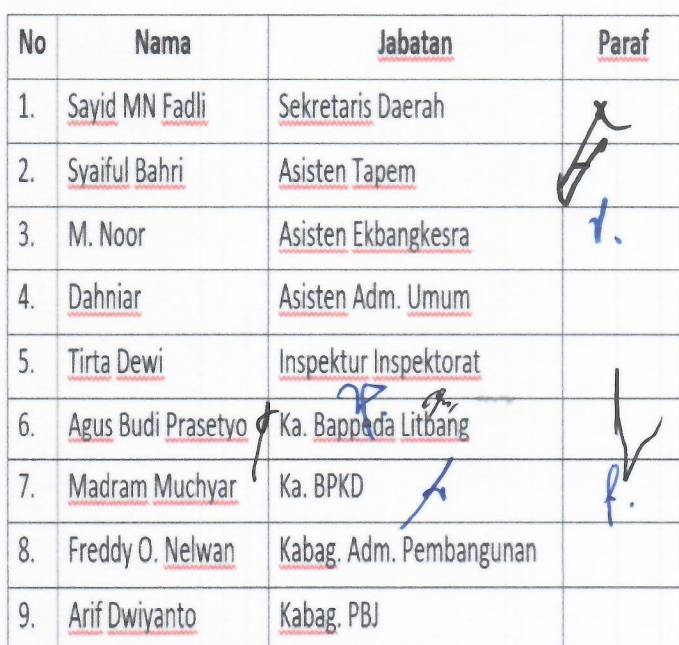 No Nama Jabatan Paraf
1. Sayid MN Fadli Sekretaris Daerah
2. Syaiful Bahri Asisten Tapem
3. M. Noor Asisten Ekbangkesra
4. Dahniar Asisten Adm. Umum
5. Tirta Dewi Inspektur Inspektorat
6. Agus Budi Prasetyo Ka. Bappeda Litbang
7. Madram Muchyar Ka. BPKD
8. Freddy O. Nelwan Kabag. Adm. Pembangunan
9. Arif Dwiyanto Kabag. PBJ